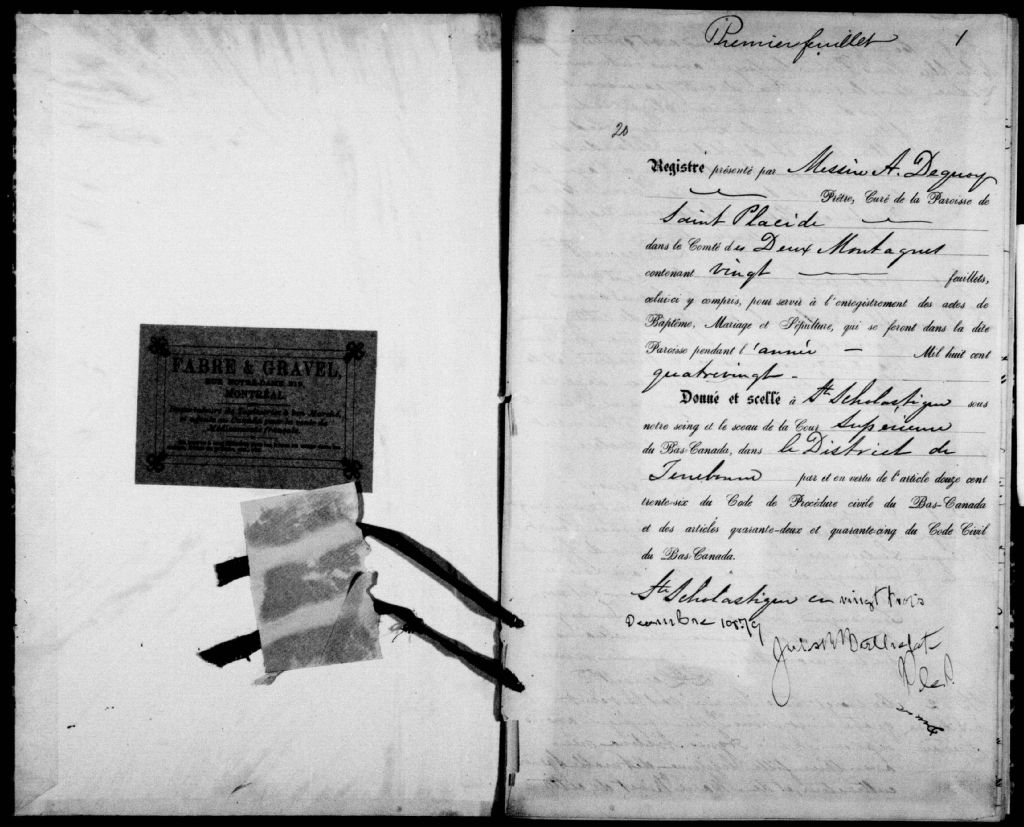 FABRE & GRAVEL,
RUE NOTRE-DAME 219,
MONTRÉAL.
Premier feuillet 1
20
Registre présenté par Messire A. Deguoy
Prêtre, Curé de la Paroisse de
Saint Placide
dans le Comté des Deux Montagnes
contenant vingt feuillets,
celui-ci y compris, pour servir à l'enregistrement des actes de
Baptême, Mariage et Sépulture, qui se feront dans la dite
Paroisse pendant l'année — Mil huit cent
quatrevingt -
Donné et scellé à Ste Scholastique sous
notre seing et le sceau de la Cour Supérieure
du Bas-Canada, dans le District de
Terrebonne par et en vertu de l'article douze cent
trente-six du Code de Procédure civile du Bas-Canada
et des articles quarante-deux et quarante-cinq du Code Civil
du Bas-Canada.
Ste Scholastique ce vingt trois
Decembre 1879